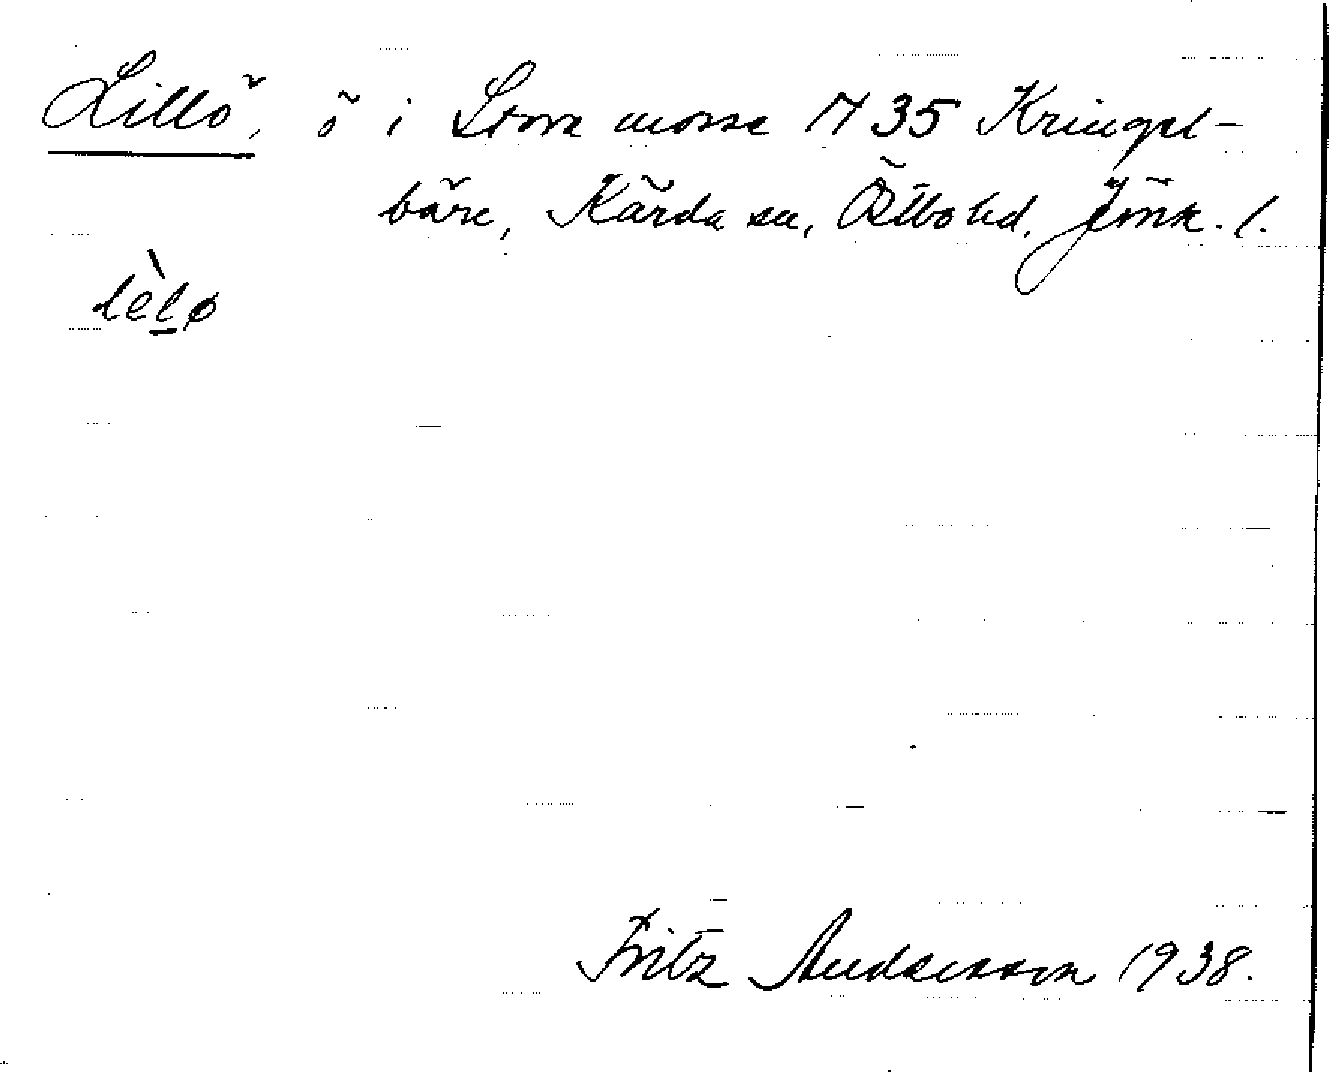 Lillö, ö i Stora mosse N 35 Kringel-
bäre, Kärda sn, Östbo hd. Jönk. l.
lèlø
Fritz Andersson 1938.